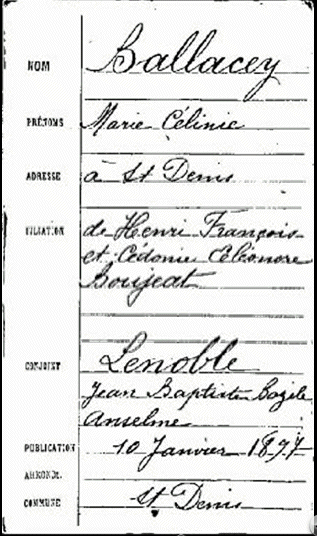 NOM Ballacey
PRÉNOMS Marie Célinie
ADRESSE à St Denis
FILIATION de Henri François
et Cédonie Eléonore
Boujeat
CONJOINT Lenoble
Jean Baptiste Bazile
Anselme
PUBLICATION 10 Janvier 1897
ARRONDt.
COMMUNE St Denis